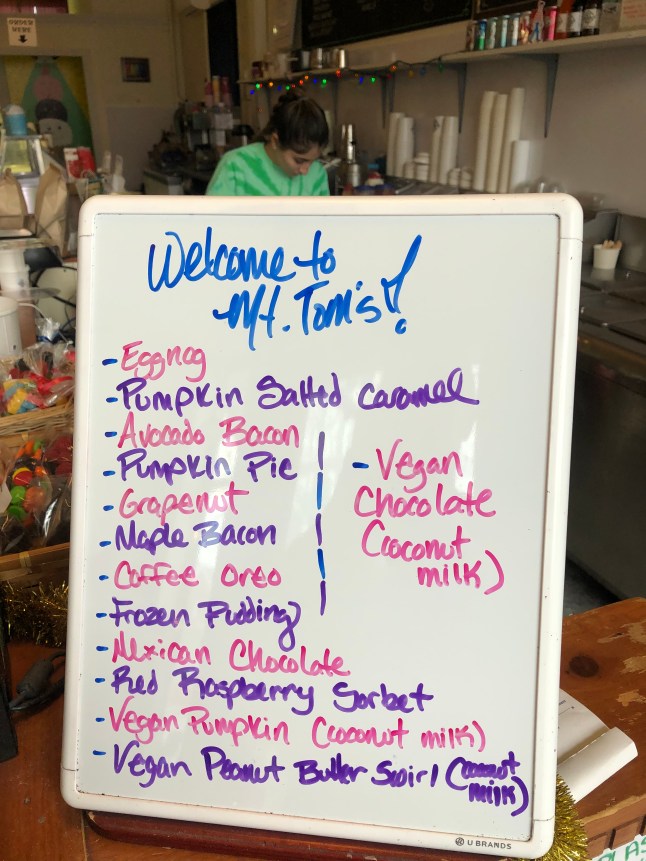 ORDER
HERE
Welcome to
Mt. Tom's!
- Eggnog
- Pumpkin Salted Caramel
- Avocado Bacon
- Pumpkin Pie
- Grapenut
- Maple Bacon
- Coffee Oreo
- Frozen Pudding
- Mexican Chocolate
- Red Raspberry Sorbet
- Vegan Pumpkin (coconut milk)
- Vegan Peanut Butter Swirl (coconut
milk)
- Vegan
Chocolate
(coconut
milk)
U BRANDS